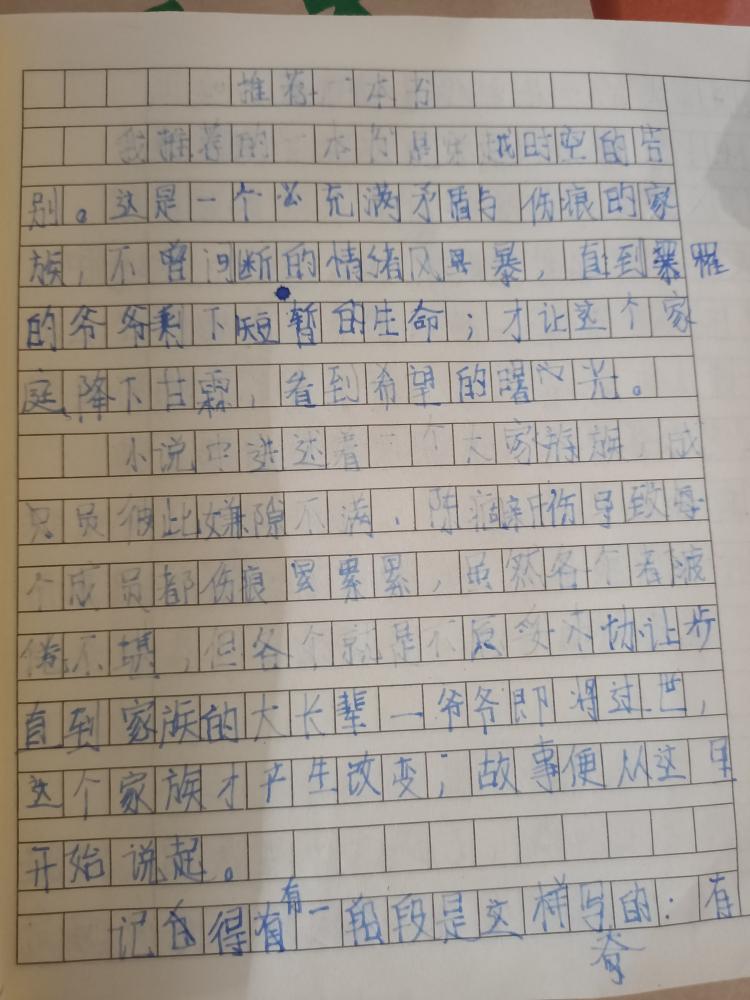 推荐一本书
我推荐的一本书是 时空的告
别。这是一个 充满矛盾与伤痕的家
族，不曾间断的情绪风暴，直到 罹
的爷爷剩下短暂的生命；才让这个家
庭降下甘霖，看到希望的曙光。
小说中讲述着一个大家族，成
员彼此嫌隙不满，陈 新伤导致每
个成员都伤痕累累，虽然各个都疲
倦不堪，但各个就是不 让步
直到家族的大长辈一爷爷即将过世，
这个家族才产生改变；故事便从这里
开始说起。
记得有一段是这样写的：有